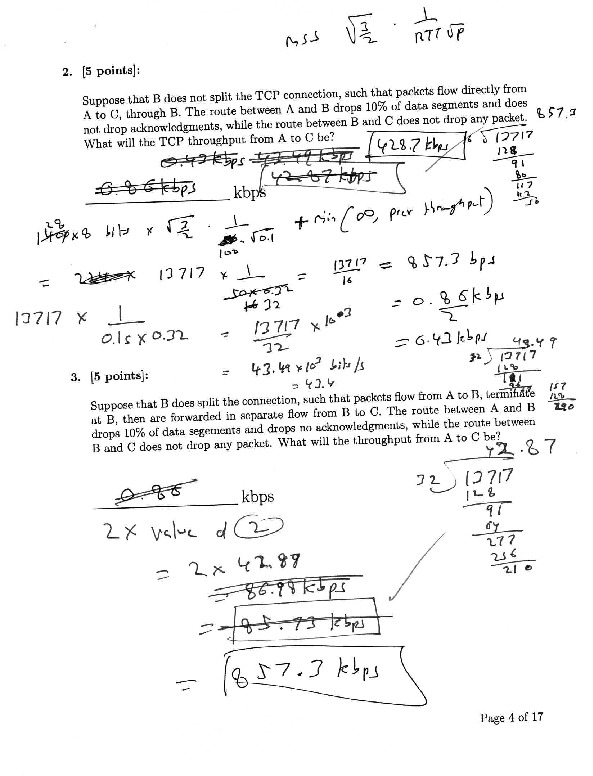 MSS √3/2 · 1/RTT√p
2. [5 points]:
Suppose that B does not split the TCP connection, such that packets flow directly from
A to C, through B. The route between A and B drops 10% of data segments and does
not drop acknowledgments, while the route between B and C does not drop any packet.
What will the TCP throughput from A to C be?
428.7 kbps
857.3
13717
128
91
80
117
0.43 kbps 43.49 kbps
0.86 kbps kbps 42.87 kbps
× 8 bits × √3/2 · 1/ √0.1 + min (∞, prev throughput)
100
= 13717 × 1/50×0.32 = 13717/16 = 857.3 bps
16 32
13717 × 1/0.1s × 0.32 = 13717/32 × 10^3 = 0.86 kbps/2
= 0.43 kbps
= 43.49 × 10^3 bits/s
= 43.4
43.49
32 13717
128
3. [5 points]:
Suppose that B does split the connection, such that packets flow from A to B, terminate
at B, then are forwarded in separate flow from B to C. The route between A and B
drops 10% of data segements and drops no acknowledgments, while the route between
B and C does not drop any packet. What will the throughput from A to C be?
157
128
290
42.87
32 13717
128
91
64
277
256
210
0.86 kbps
2 × value of 2
= 2 × 42.89
= 86.98 kbps
= 85.73 kbps
= 857.3 kbps
Page 4 of 17